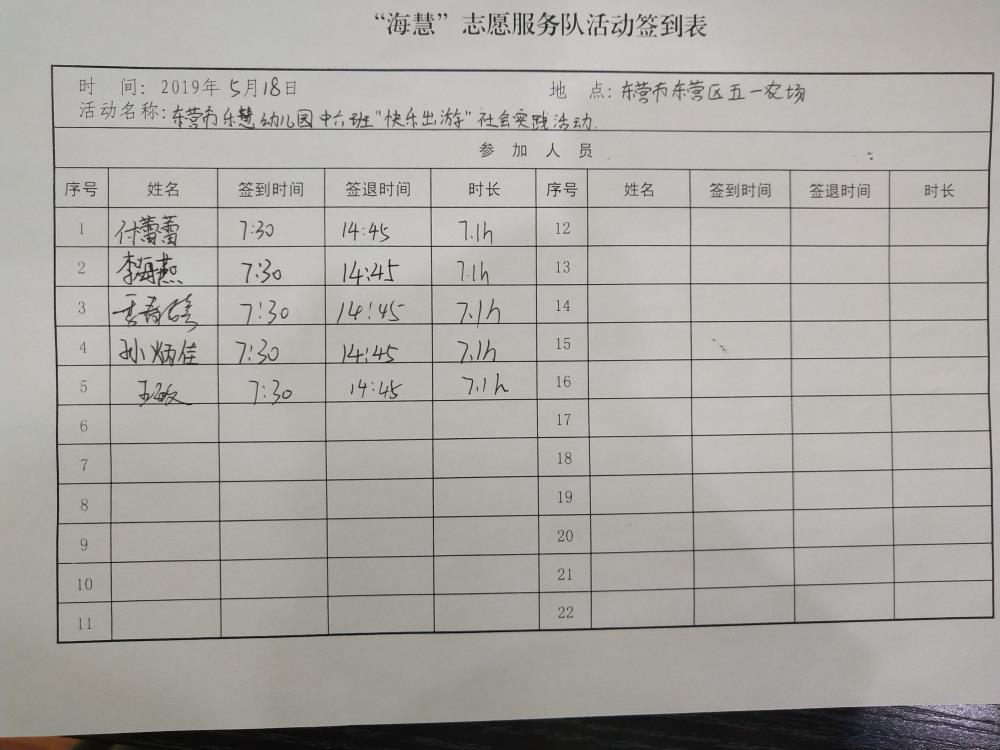 “海慧”志愿服务队活动签到表
时 间: 2019年5月18日 地 点: 东营市东营区五一农场
活动名称: 东营市乐慧幼儿园中六班"快乐出游"社会实践活动.
参 加 人 员
序号 姓名 签到时间 签退时间 时长 序号 姓名 签到时间 签退时间 时长
1 付蕾蕾 7:30 14:45 7.1h 12
2 李海燕 7:30 14:45 7.1h 13
3 7:30 14:45 7.1h 14
4 孙炳佳 7:30 14:45 7.1h 15
5 王敏 7:30 14:45 7.1h 16
6 17
7 18
8 19
9 20
10 21
11 22